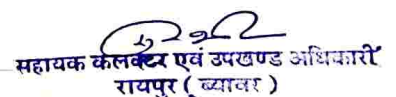 सहायक कलक्टर एवं उपखण्ड अधिकारी
रायपुर ( ब्यावर )